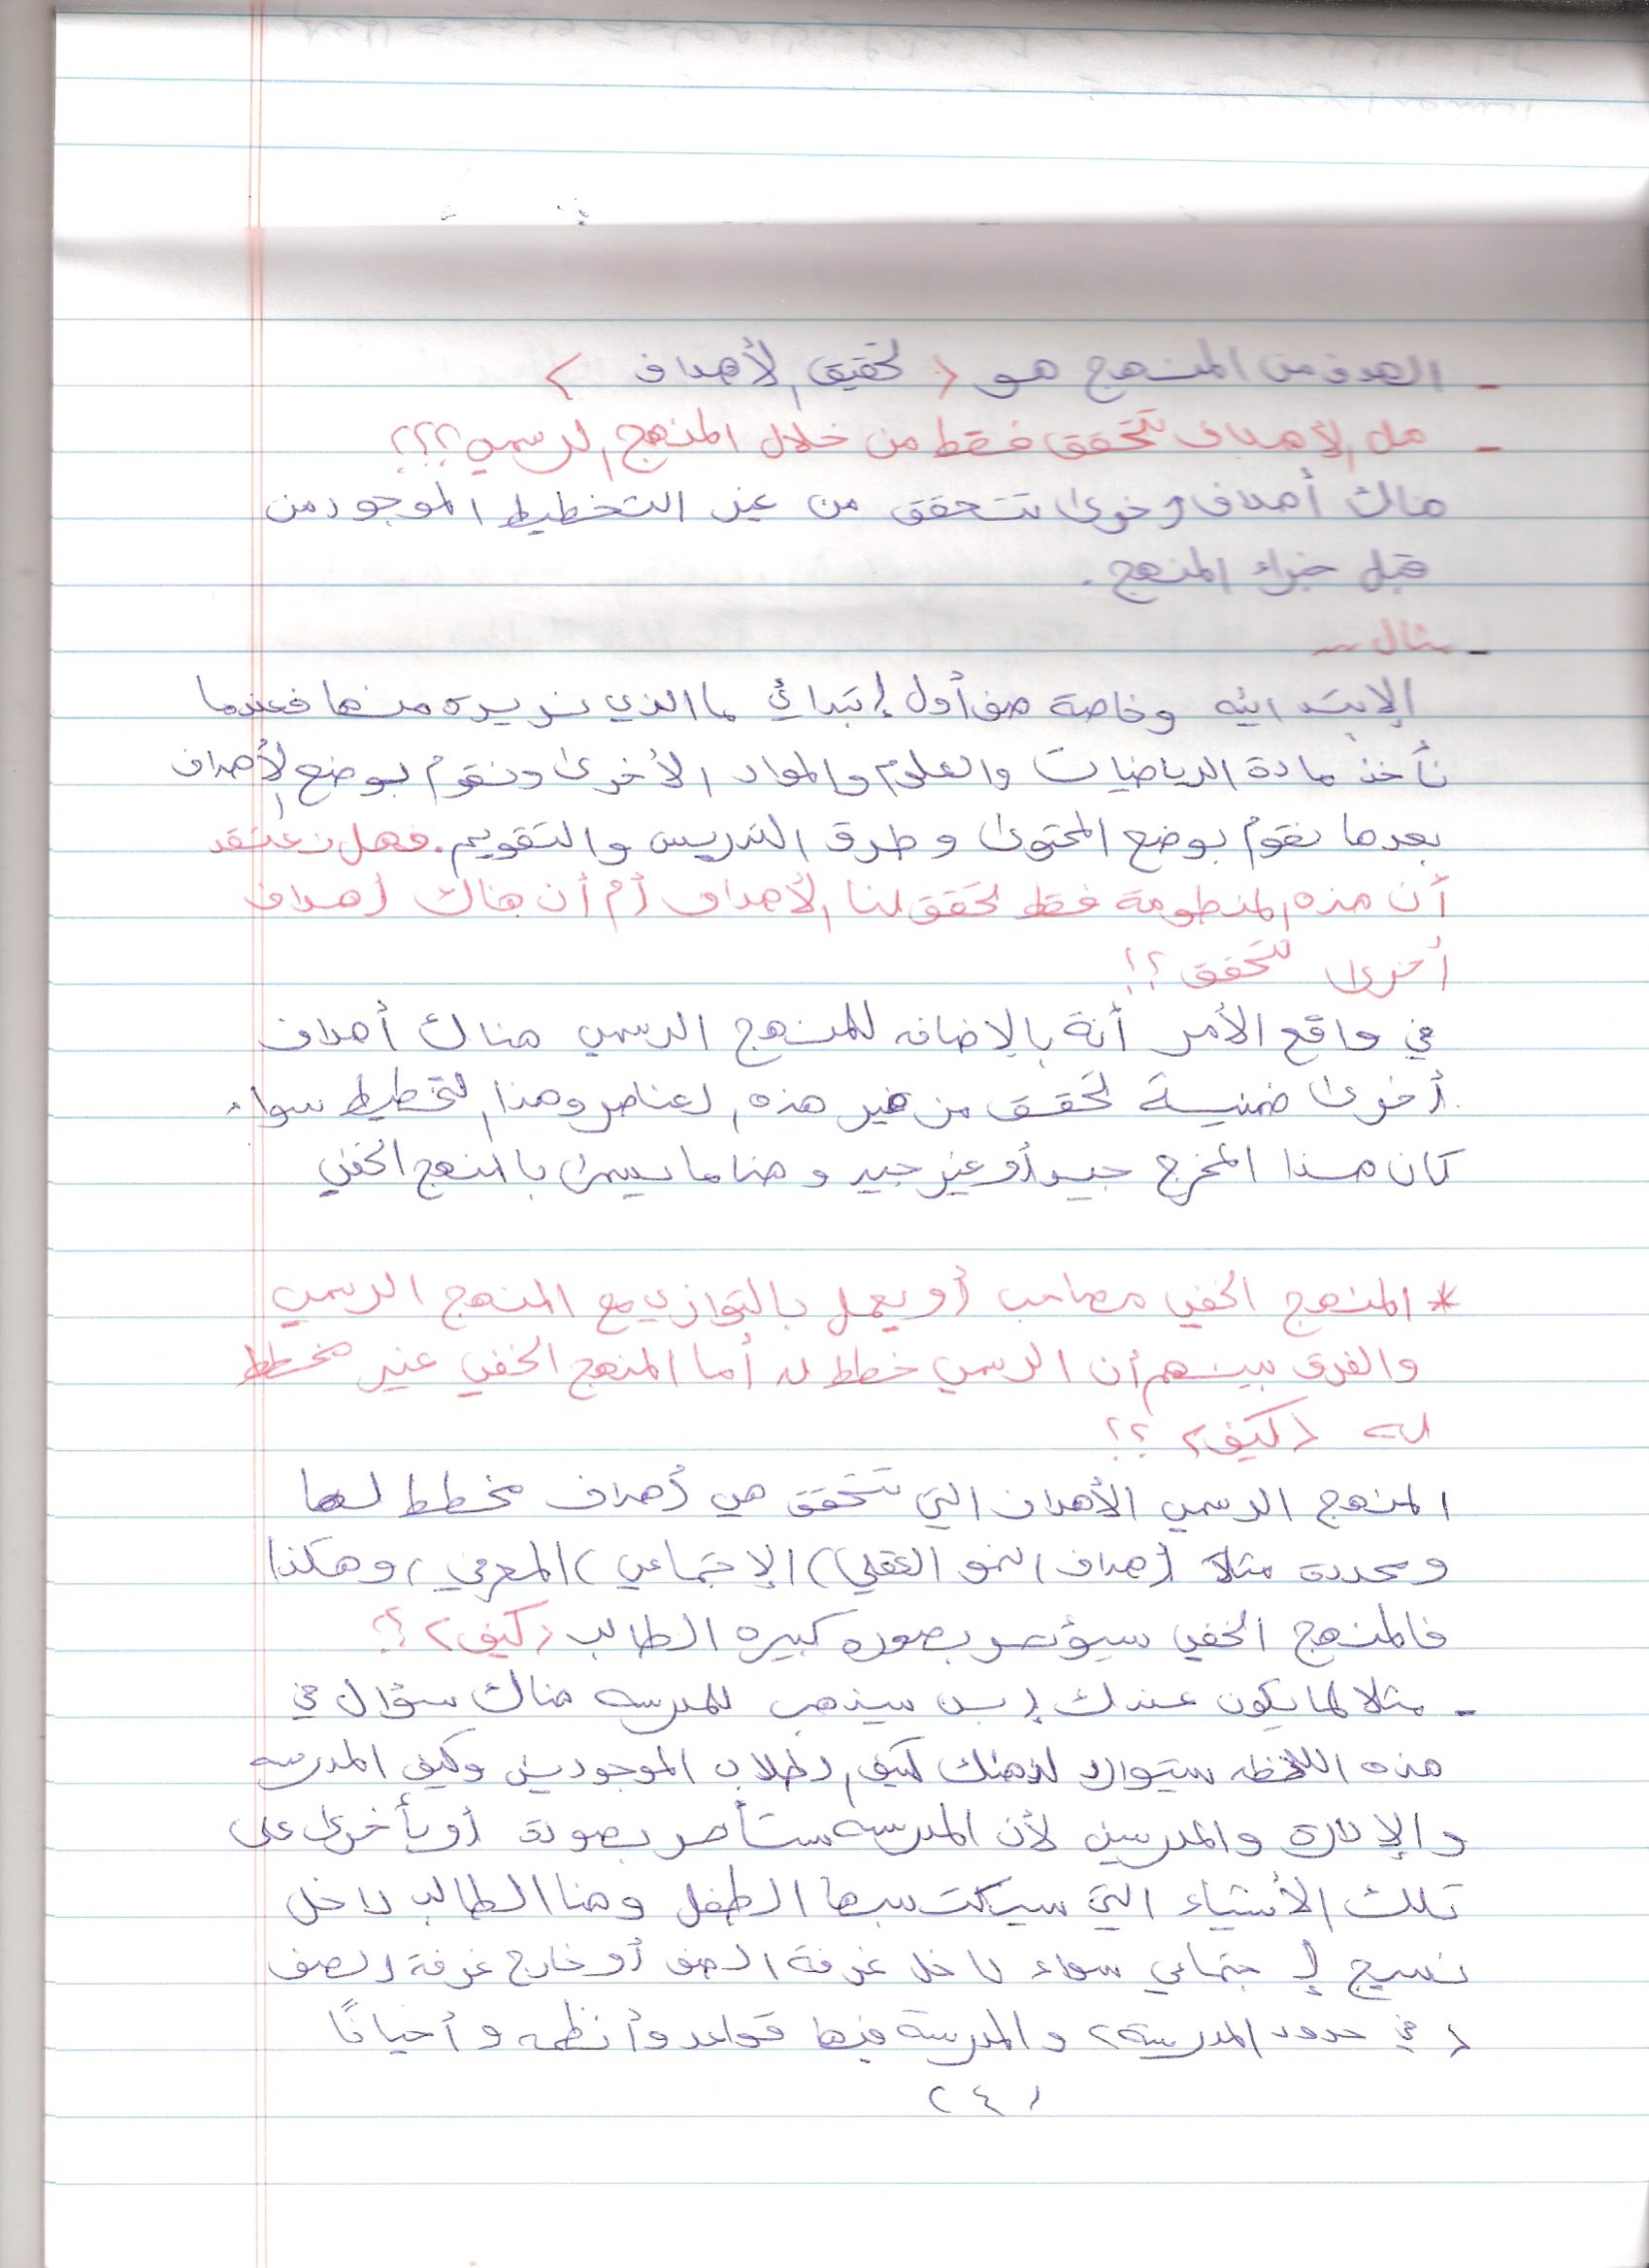 - الهدف من المنهج هو ( تحقيق الأهداف )
- هل الأهداف تتحقق فقط من خلال المنهج الرسمي ؟؟؟
هناك أهداف أخرى تتحقق من غير التخطيط الموجود من
قبل خبراء المنهج .
- مثال
الإبتدائيه وخاصة صف أول إبتدائي ما الذي نريده منها فعندما
نأخذ مادة الرياضيات والعلوم والمواد الأخرى ونقوم بوضع الأهداف
بعدها نقوم بوضع المحتوى وطرق التدريس والتقويم . فهل نعتقد
أن هذه المنظومة فقط تحقق لنا الأهداف أم أن هناك أهداف
أخرى تتحقق ؟!
في واقع الأمر أنة بالإضافه للمنهج الرسمي هناك أهداف
أخرى ضمنية تحقق من غير هذه العناصر وهذا التخطيط سواء
كان هذا المخرج جيد أو غير جيد وهنا ما يسمى بالمنهج الخفي
* المنهج الخفي مصاحب أو يعمل بالتوازي مع المنهج الرسمي
والفرق بينهم أن الرسمي خطط له أما المنهج الخفي غير مخطط
له (كيف) ؟؟
المنهج الرسمي الأهداف التي تتحقق هي أهداف مخطط لها
ومحددة مثلا (أهداف النمو العقلي) (الإجتماعي) (المعرفي) وهكذا
فالمنهج الخفي سيؤثر بصوره كبيره الطالب (كيف) ؟؟
- مثلا لما يكون عندك إبن سيذهب للمدرسه هناك سؤال في
هذه اللحظه سيتوارد لذهنك كيف الطلاب الموجودين وكيف المدرسه
والإدارة والمدرسين لأن المدرسه ستأثر بصورة أو بأخرى على
تلك الأشياء التي سيكتسبها الطفل وهنا الطالب داخل
نسيج إجتماعي سواء داخل غرفة الصف أو خارج غرفة الصف
( في حدود المدرسة ) والمدرسة فيها قواعد وأنظمه وأحيانًا
(٤)